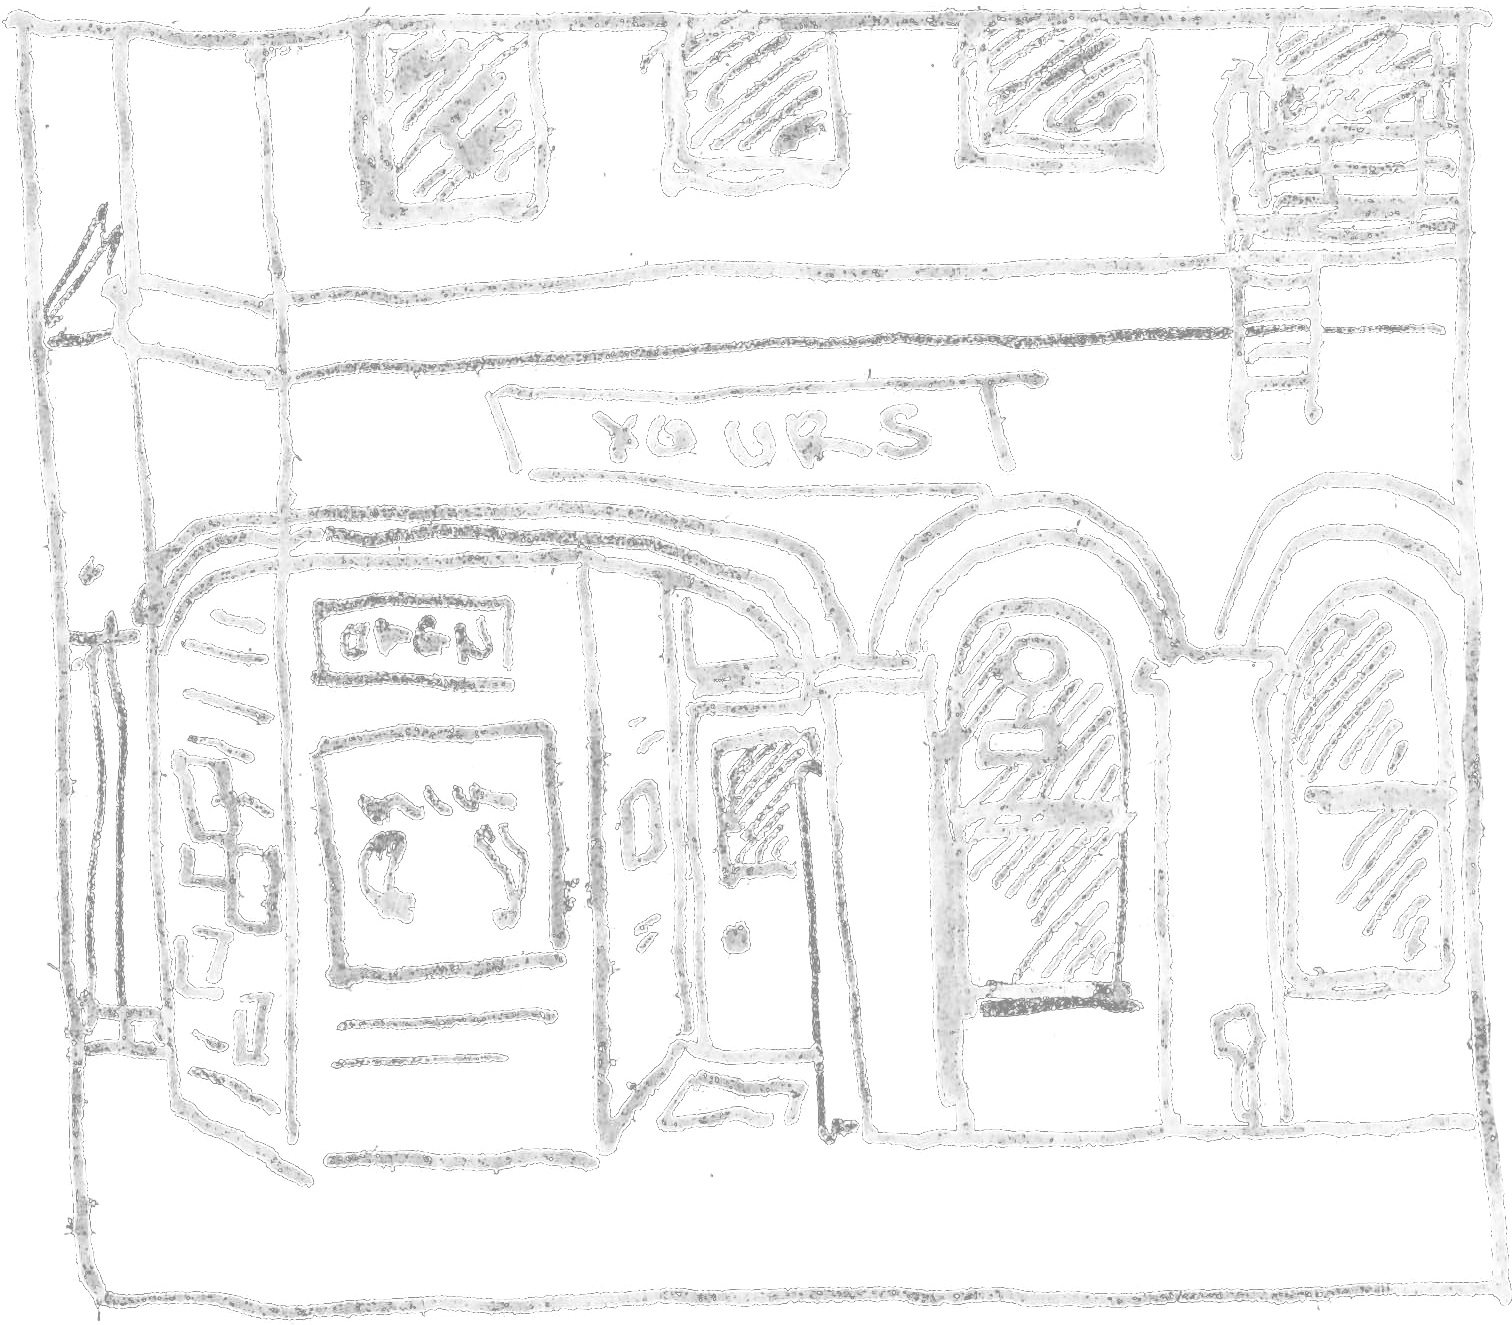 YOURS
OPEN